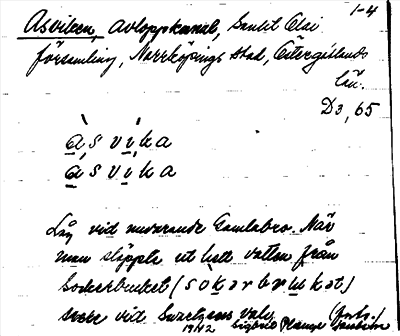 1-4
Asviken, avloppskanal, Sankt Olai
församling, Norrköpings stad, Östergötlands
län.
D3, 65
àsvìka
asvika
Låg vid nuvarande Gamlebro. När
man släppte ut hett vatten från
Sockerbruket (sokərbrukət)
vid
1942 Sigbrit Plænge
(forts.)